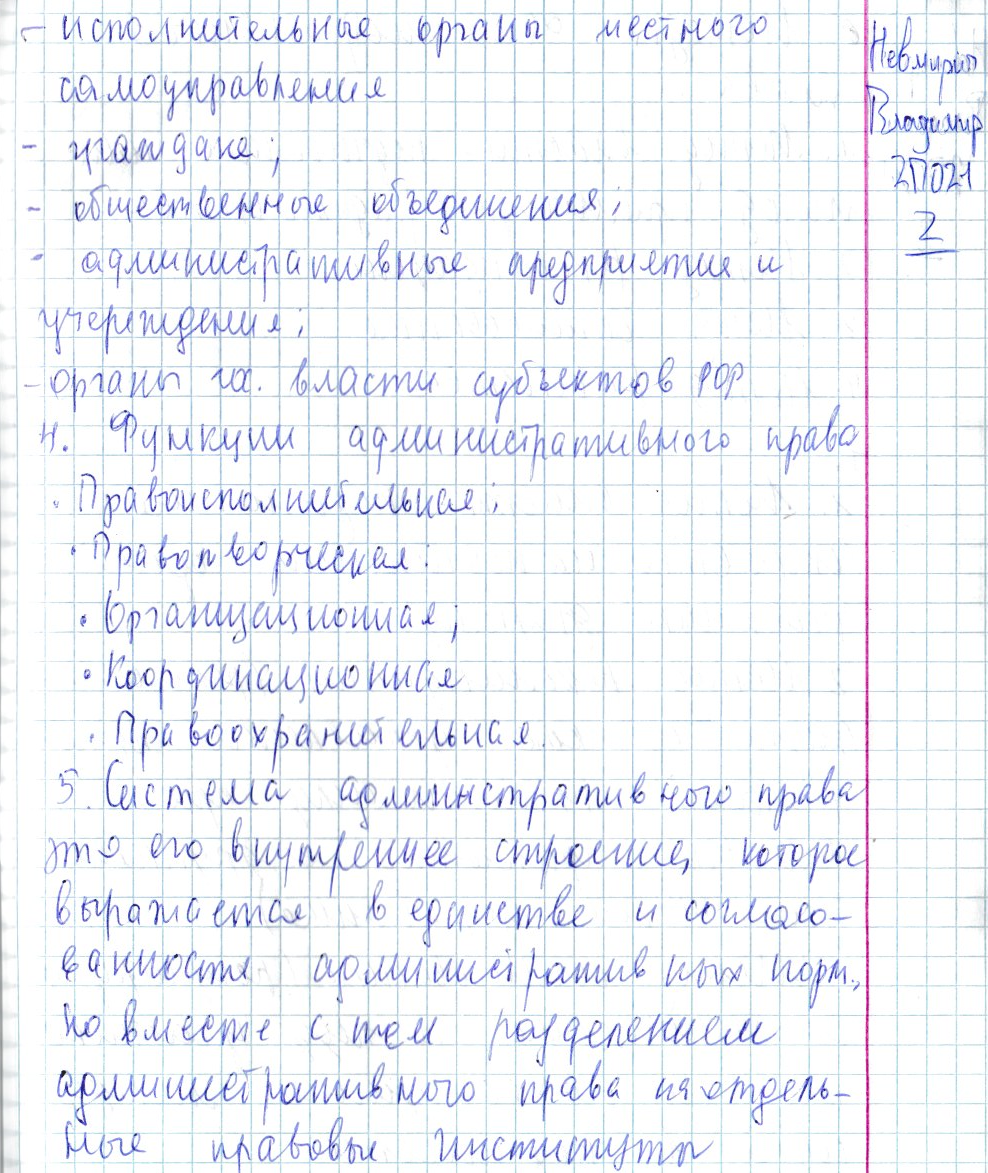 - исполнительные органы местного
самоуправления
- граждане;
- общественные объединения;
- административные предприятия и
учереждения;
- органы гос. власти субъектов РФ
4. Функции административного права
· Правоисполнительная;
· Правотворческая:
· Организационная;
· Координационная
· Правоохранительная.
5. Система административного права
это его внутреннее строение, которое
выражается в единстве и согласо-
ванности административных норм,
но вместе с тем разделением
административного права на отдель-
ные правовые институты
Владимир
2ПО21
2